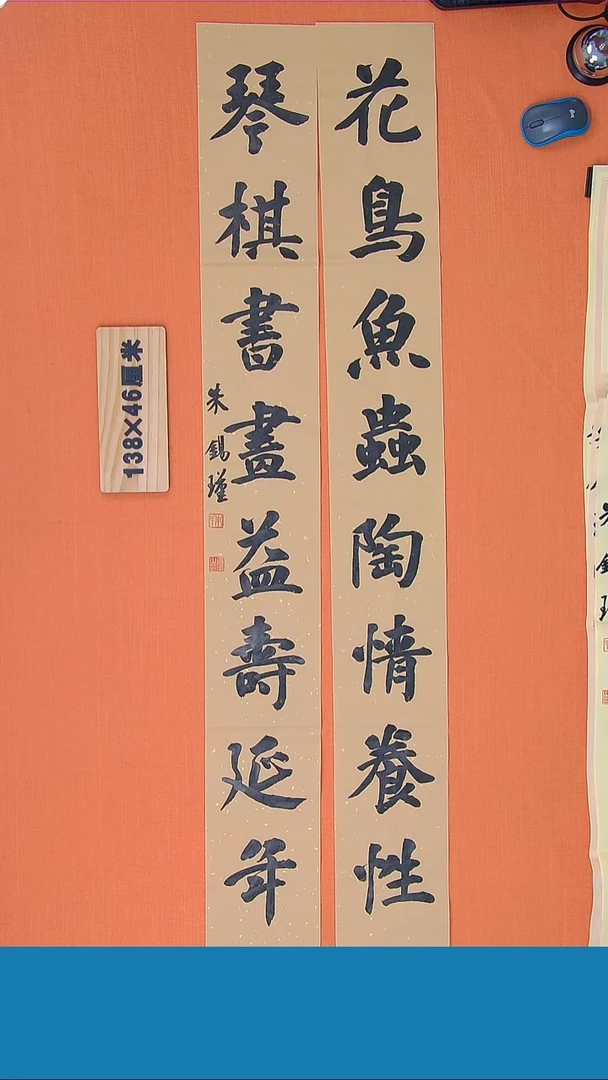 花鳥魚蟲陶情養性
琴棋書畫益壽延年
朱錫瑾
138×46厘米